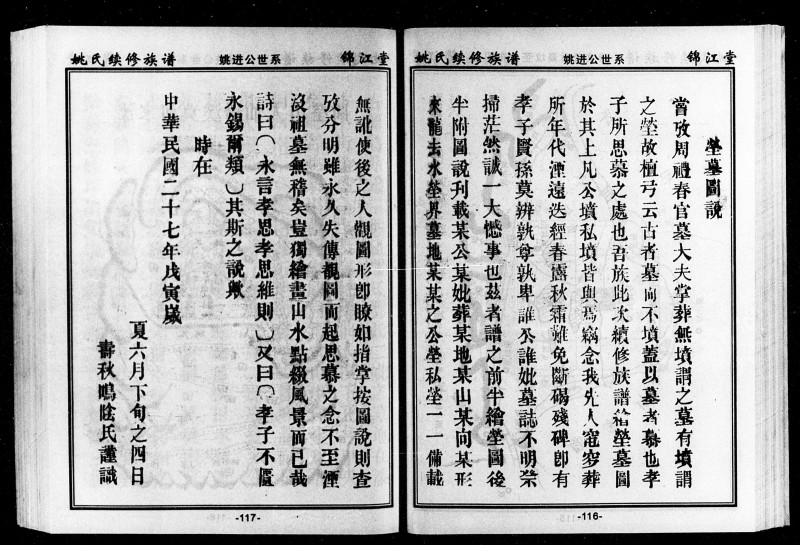 姚氏续修族谱
姚进公世系
锦江堂
塋墓圖說
當攷周禮春官墓大夫掌葬無墳謂之墓有墳謂
之塋故檀弓云古者墓而不墳蓋以墓者慕也孝
子所思慕之處也吾族此次續修族譜繪塋墓圖
於其上凡公墳私墳皆與焉竊念我先人窀穸葬
所年代湮遠迭經春露秋霜難免斷碣殘碑即有
孝子賢孫莫辨孰尊孰卑誰公誰妣墓誌不明祭
掃茫然誠一大憾事也茲者譜之前半繪塋圖後
半附圖說刊載某公某妣葬某地某山某向某形
來龍去水塋界墓地某某之公塋私塋一一備載
-116-
姚氏续修族谱
姚进公世系
锦江堂
無訛使後之人觀圖形即瞭如指掌按圖說則查
攷分明雖永久失傳覩圖而起思慕之念不至湮
沒祖墓無稽矣豈獨繪畫山水點綴風景而已哉
詩曰︵永言孝思孝思維則︶又曰︵孝子不匱
永錫爾類︶其斯之說歟
時在
中華民國二十七年戊寅歲
夏六月下旬之四日
壽秋鳴陰氏謹識
-117-